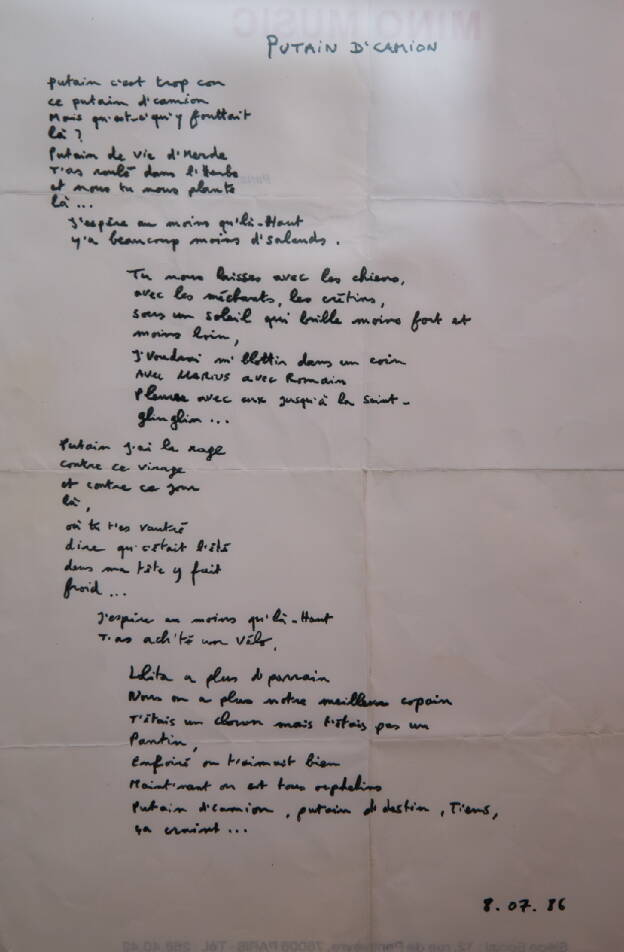 PUTAIN D'CAMION
putain c'est trop con
ce putain d'camion
Mais qu'est-c'qui y fouttait
là ?
Putain de vie d'Merde
T'as roulé dans l'Herbe
et nous tu nous plante
là ...
J'espère au moins qu'là-Haut
y'a beaucoup moins d'salauds.
Tu nous laisses avec les chiens,
avec les méchants, les crétins,
sous un soleil qui brille moins fort et
moins loin,
J'voudrai m'blottir dans un coin
Avec MARIUS avec Romain
Pleurer avec eux jusqu'à la saint-
glinglin ...
Putain j'ai la rage
contre ce virage
et contre ce jour
là,
où tu t'es vautré
dire qu'c'était l'été
dans ma tête y fait
froid ...
J'espère au moins qu'là-Haut
T'as ach'té un vélo.
Lolita a plus d'parrain
Nous on a plus notre meilleur copain
T'étais un clown mais t'étais pas un
Pantin,
Enfoiré on t'aimait bien
Maint'nant on est tous orphelins
Putain d'camion, putain d'destin, Tiens,
ça craint ...
8.07.86
MINO MUSIC